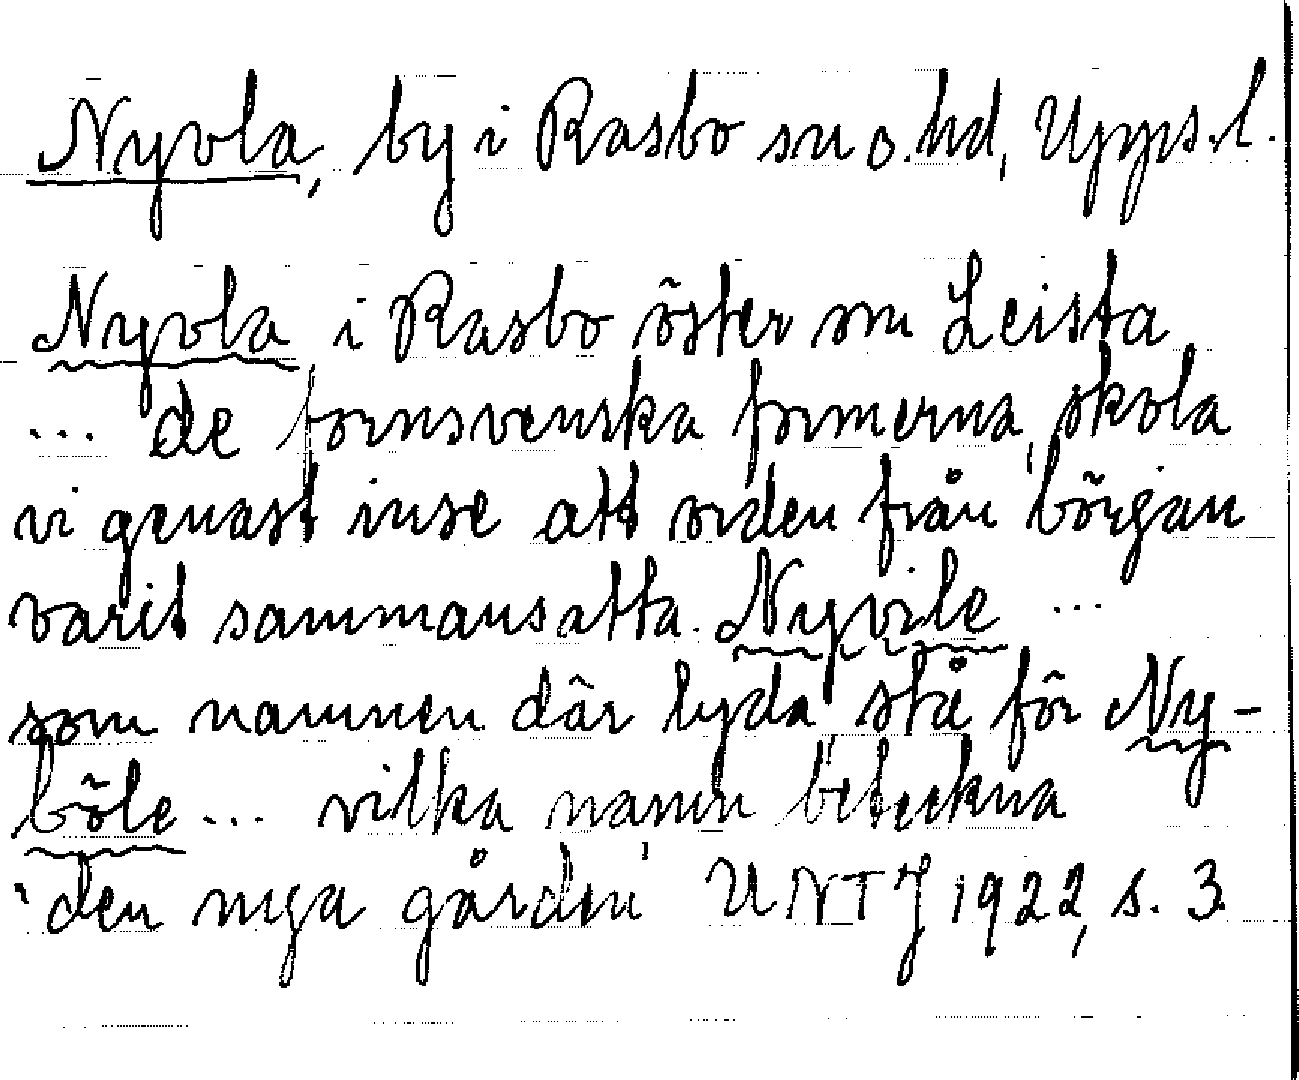 Nyvla, by i Rasbo sn o. hd, Upps. l.
Nyvla i Rasbo öster om Leista
... de fornsvenska formerna, skola
vi genast inse att orden från börjgan
varit sammansatta. Nyvile ...
som namnen där lyda, stå för Ny-
böle ... vilka namn beteckna
'den nya gården' UNTJ 1922, s. 3.